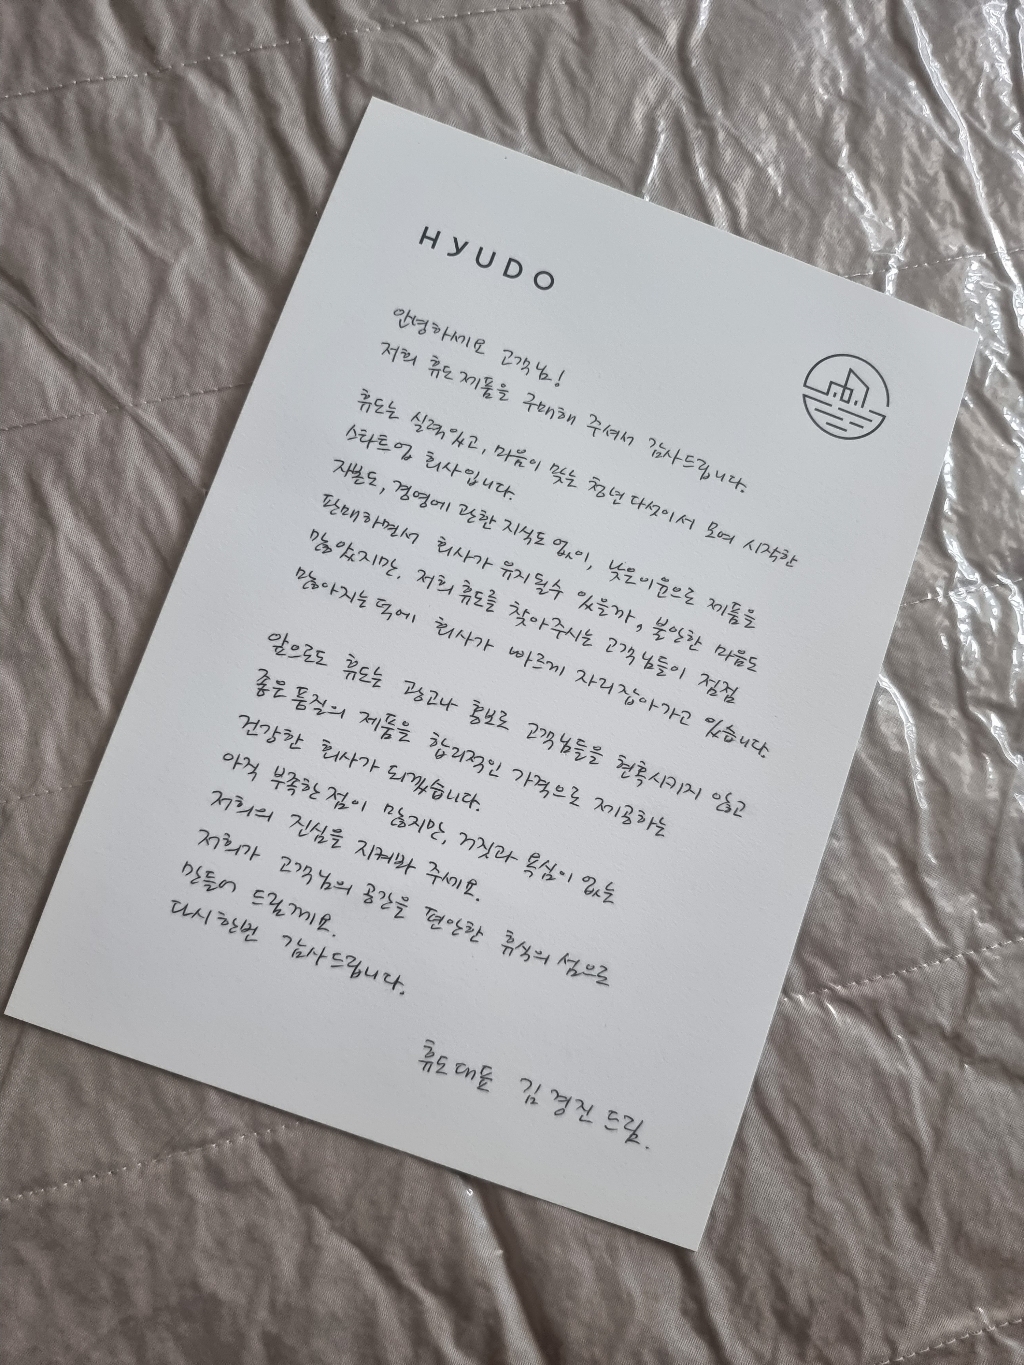 HYUDO
안녕하세요 고객님!
저희 휴도 제품을 구매해 주셔서 감사드립니다.
휴도는 실력있고, 마음이 맞는 청년 다섯이서 모여 시작한
스타트업 회사입니다.
자본도, 경영에 관한 지식도 없이, 낮은이윤으로 제품을
판매하면서 회사가 유지될수 있을까, 불안한 마음도
많았지만, 저희 휴도를 찾아주시는 고객님들이 점점
많아지는덕에 회사가 빠르게 자리잡아가고 있습니다.
앞으로도 휴도는 광고나 홍보로 고객님들을 현혹시키지 않고
좋은 품질의 제품을 합리적인 가격으로 제공하는
건강한 회사가 되겠습니다.
아직 부족한 점이 많지만, 거짓과 욕심이 없는
저희의 진심을 지켜봐 주세요.
저희가 고객님의 공간을 편안한 휴식의 섬으로
만들어 드릴게요.
다시한번 감사드립니다.
휴도대표 김경진 드림.